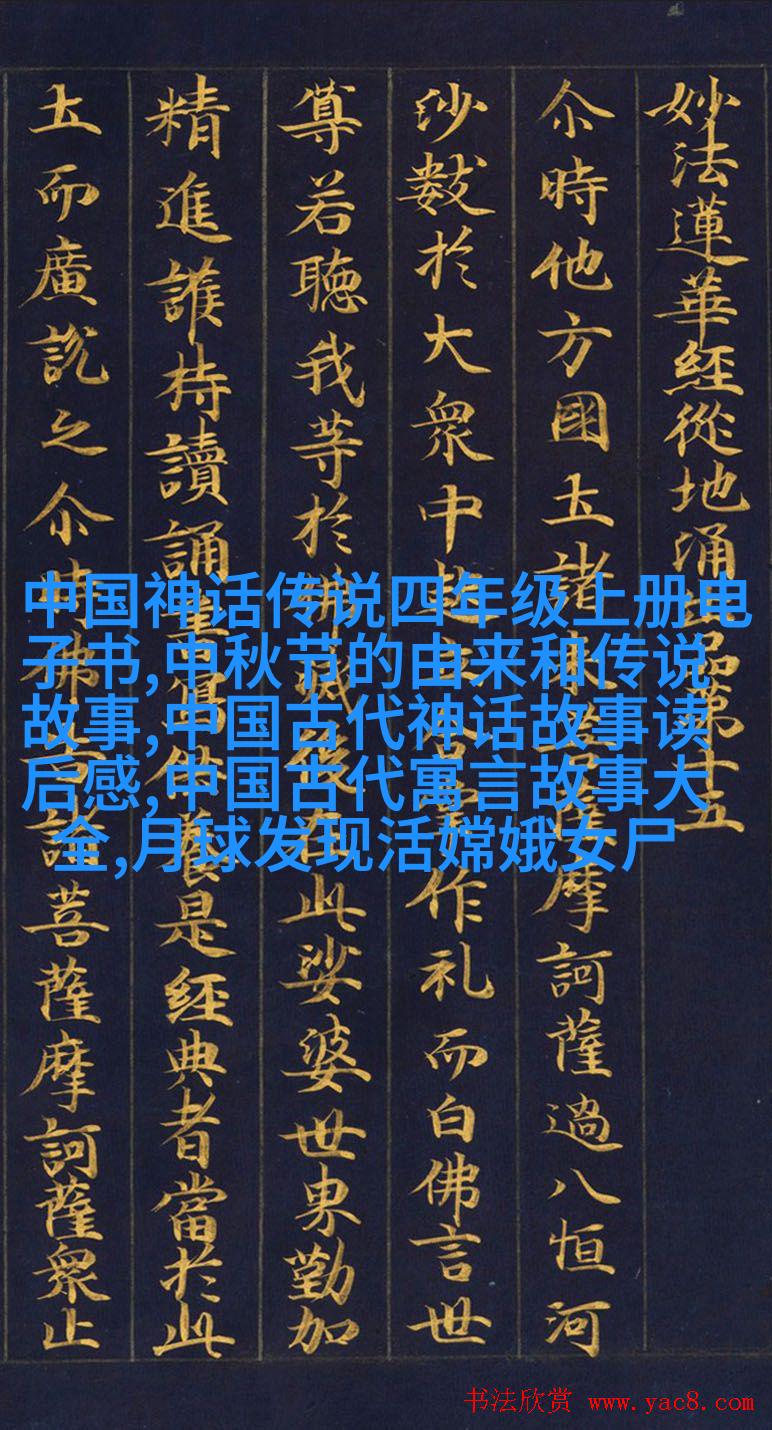 妙法蓮華経從地涌出品第十五
尒時他方國土諸來菩薩摩訶薩過八恒河
沙數於大眾中起立合掌作礼而白佛言世
尊若聴我等於佛滅後在此娑婆世界勤加
精進護持讀誦書寫供養是経典者當於此
土而廣說之尒時佛告諸菩薩摩訶薩眾止
中国神话传说四年级上册电
子书,中秋节的由来和传说
故事,中国古代神话故事读
后感,中国古代寓言故事大
全,月球发现活嫦娥女尸
书法欣赏 www.yac8.com